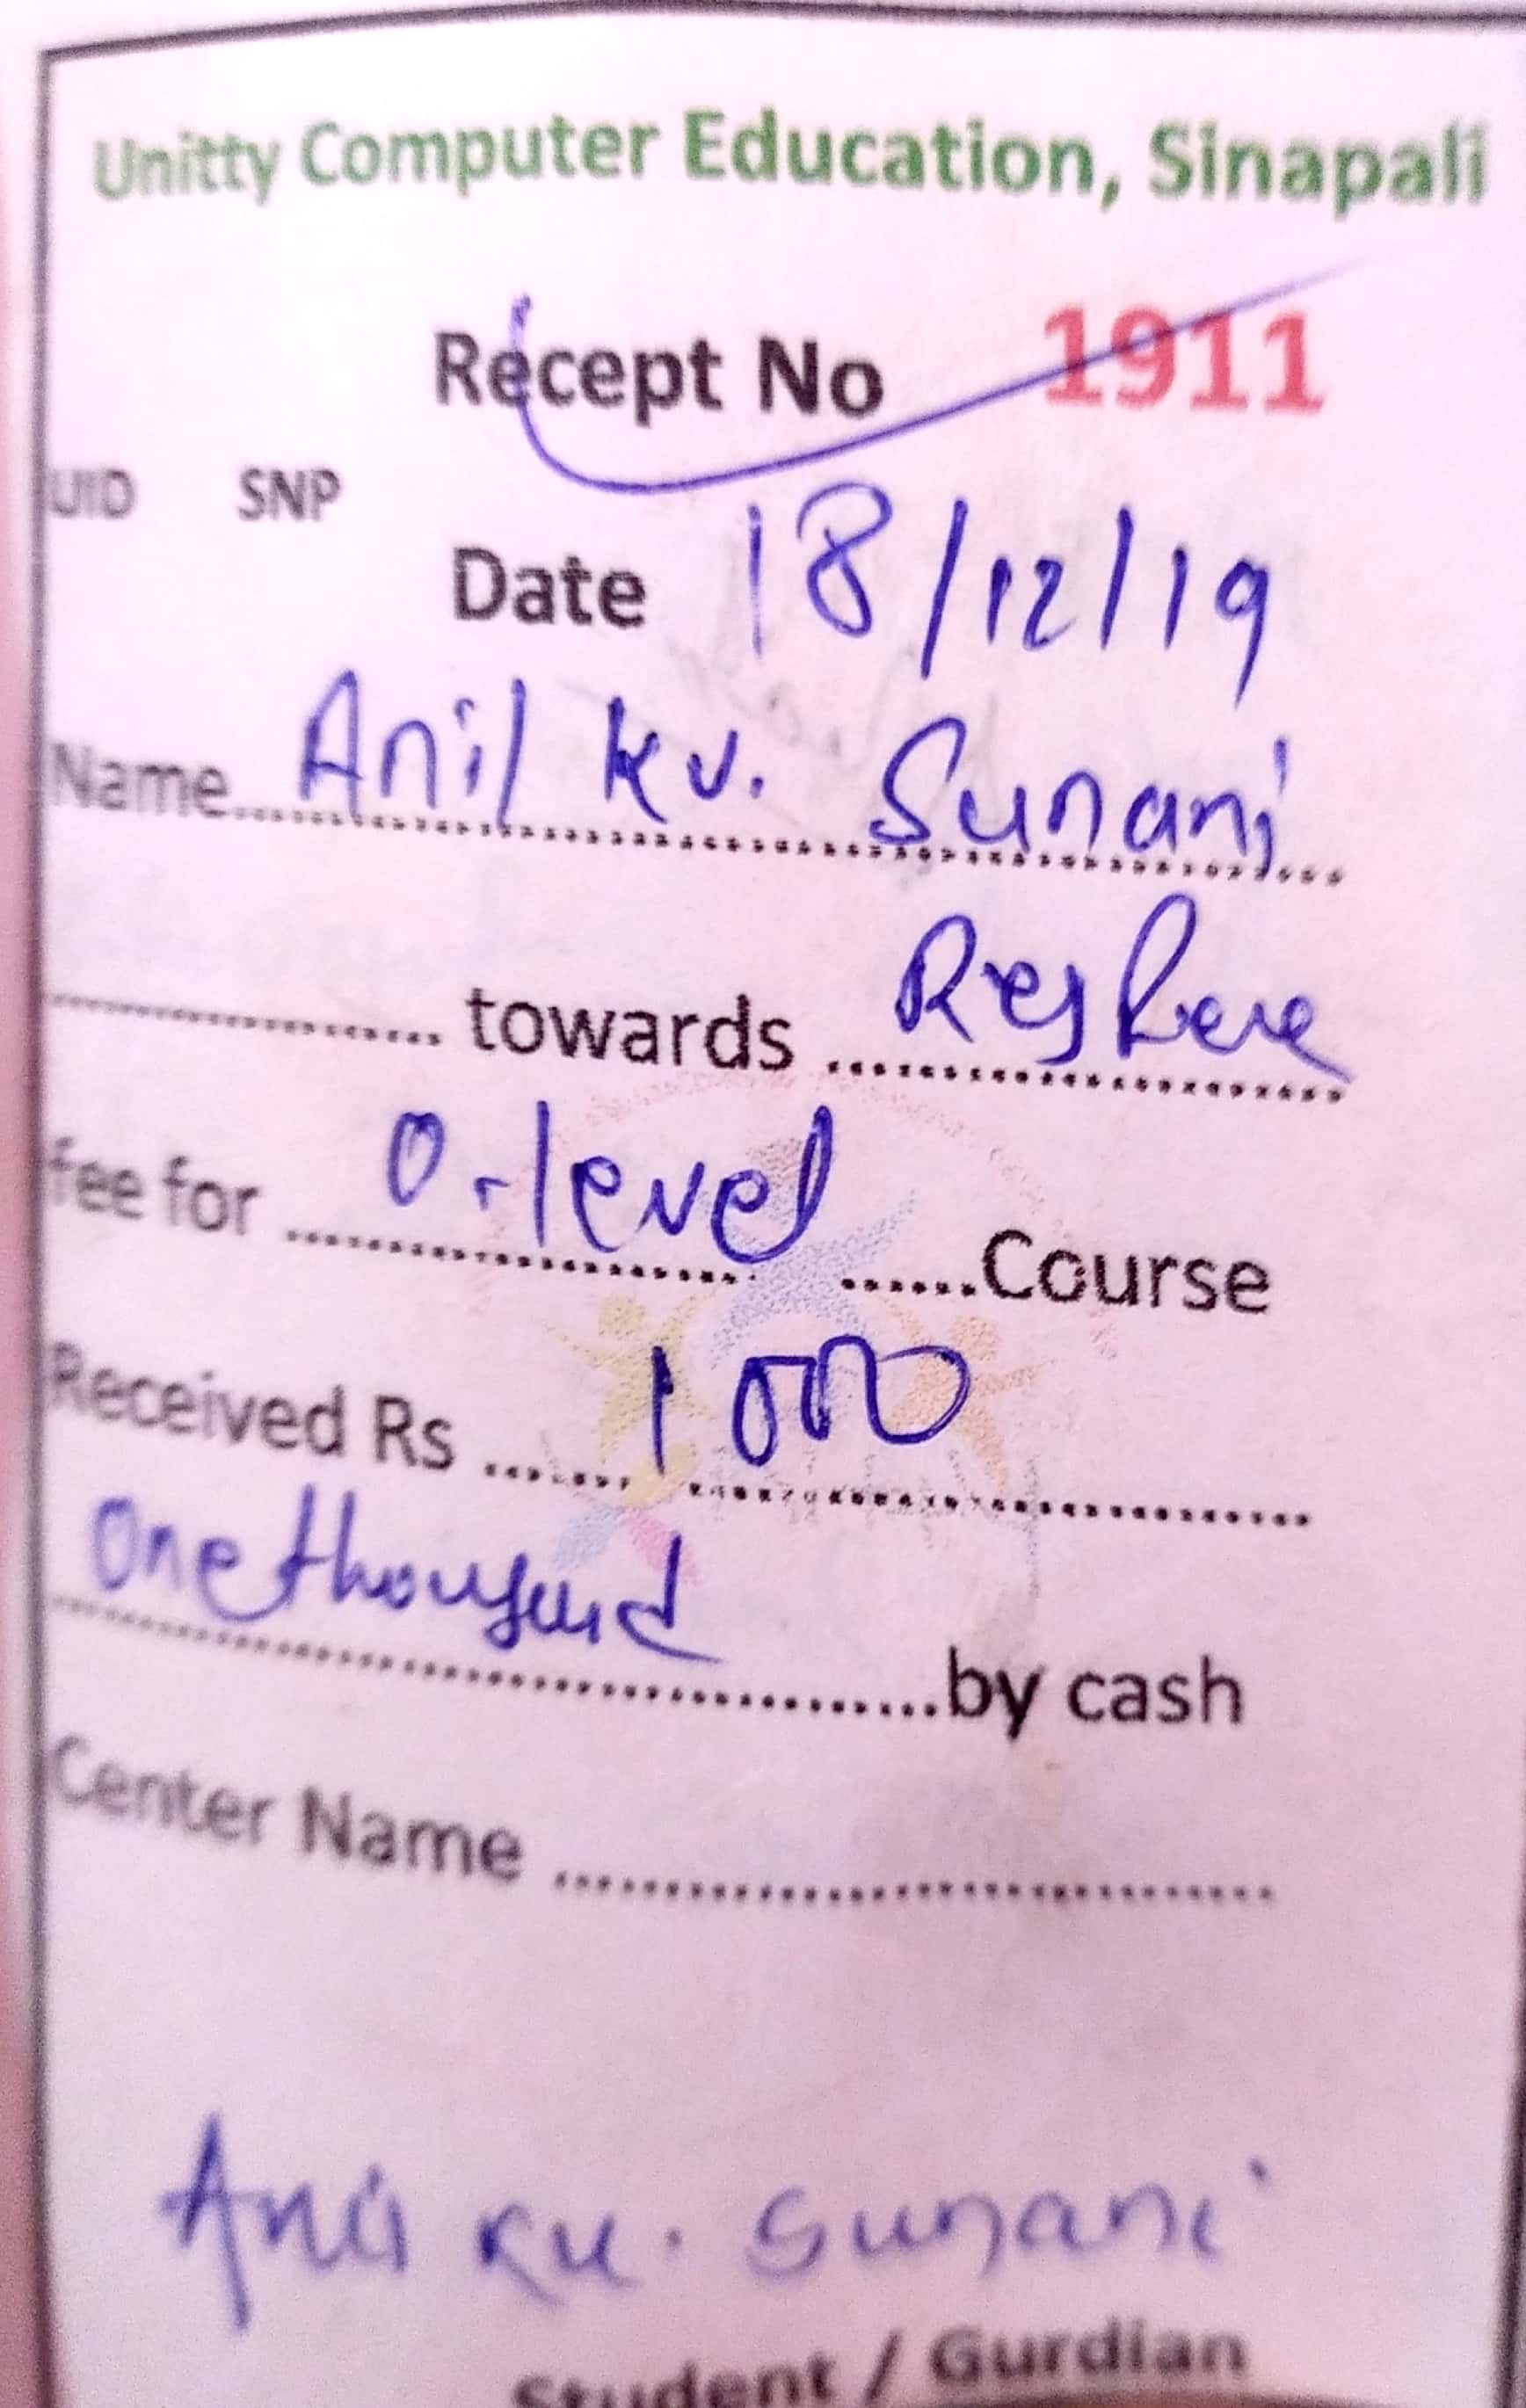 Unitty Computer Education, Sinapali
Recept No 1911
UID SNP
Date 18/12/19
Name Anil Ku. Sunani
towards Reg
fee for O-level Course
Received Rs 1000
One thousand by cash
Center Name
Anil Ku. Sunani
Student / Gurdian